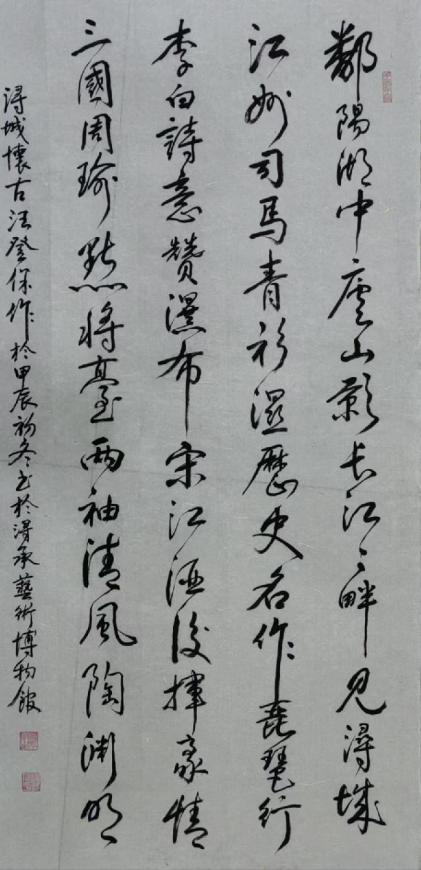 鄱陽湖中廬山影长江々畔見潯城
江州司马青衫濕歷史名作琵琶行
李白詩意贊瀑布宋江酒後揮豪情
三國周瑜點將臺兩袖清風陶渊明
潯城懷古汪登保作於甲辰初冬书於潯承藝術博物館